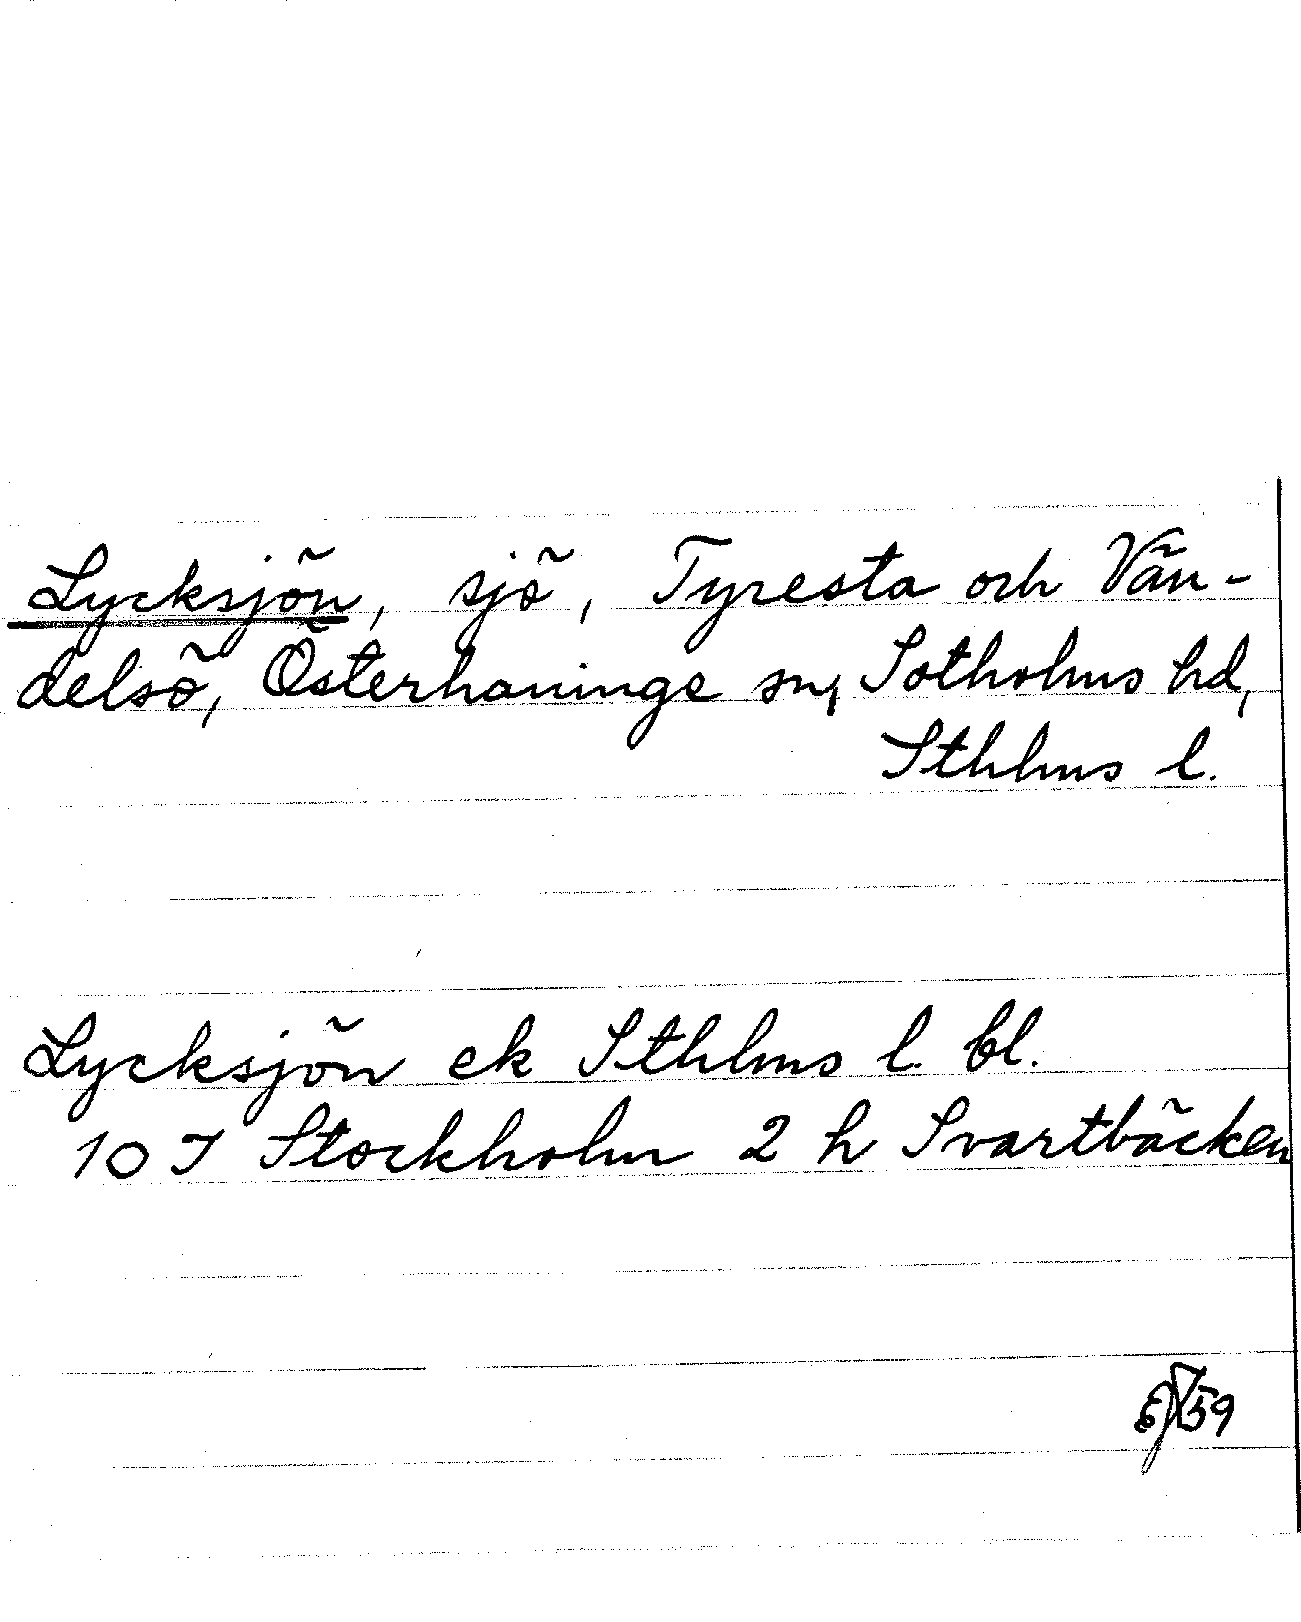 Lycksjön, sjö, Tyresta och Vän-
delsö, Österhaninge sn, Sotholms hd,
Sthlms l.
Lycksjön ek Sthlms l. bl.
10J Stockholm 2 h Svartbäcken
59